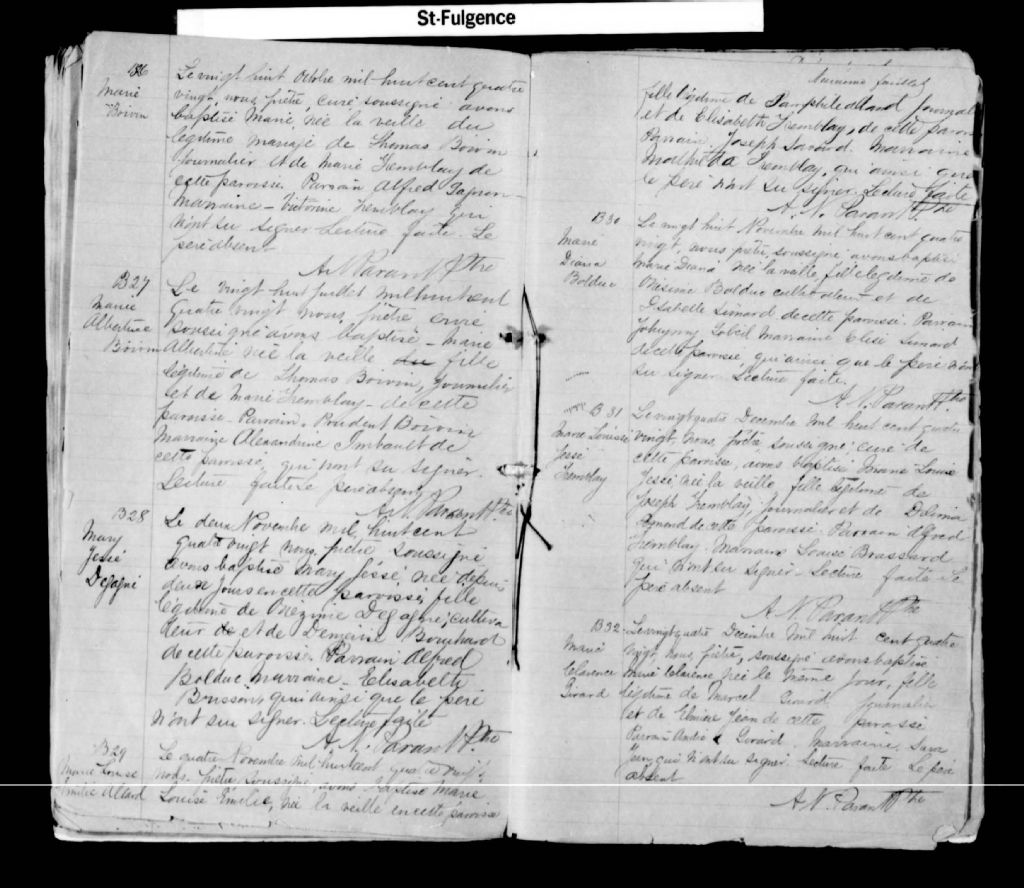 St-Fulgence
B26
Marie
Boivin
Le vingt huit octobre mil huit cent quatre
vingt, nous, prêtre, curé soussigné avons
baptisé Marie, née la veille du
legitime mariage de Thomas Boivin
journalier et de Marie Tremblay de
cette paroisse. Parrain Alfred
Marraine - Victorine Tremblay qui
n'ont su signer Lecture faite. Le
père absent
A N Parant Ptre
B27
Marie
Albertine
Boivin
Le vingt huit juillet mil huit cent
quatre vingt nous, prêtre curé
soussigné avons baptisé - Marie
Albertine née la veille du fille
legitime de Thomas Boivin, journalier
et de Marie Tremblay - de cette
paroisse - Parrain, Prudent Boivin
Marraine Alexandrine Imbault de
cette paroisse, qui n'ont su signer.
Lecture faite le père absent
A N Parant Ptre
B28
Mary
Jessé
Degagné
Le deux Novembre mil huit cent
quatre vingt nous, prêtre soussigné
avons baptisé Mary Jessé, née depuis
deux jours en cette paroisse, fille
légitime de Onezime Degagné, cultiva
teur de et de Demerise Bouchard
de cette paroisse. Parrain Alfred
Bolduc marraine - Elisabeth
qui ainsi que le père
n'ont su signer. Lecture faite
A. N. Parant Ptre
B29
Marie Louise
Emélie Allard
Le quatre Novembre mil huit cent quatre vingt
nous, prêtre soussigné, avons baptisé Marie
Louise Emélie, née la veille en cette paroisse
feuillet
fille légitime de Pamphile Allard Journal
et de Elisabeth Tremblay, de cette paroi
Parrain, Joseph Savard. Marraine
Mathilda Tremblay, qui ainsi que
le père n'ont su signer Lecture faite
A. N. Parant Ptre
B30
Marie
Diana
Bolduc
Le vingt huit Novembre mil huit cent quatre
vingt, nous prêtre, soussigné, avons baptisé
Marie Diana née la veille, fille legitime de
Onesime Bolduc cultivateur et de
Isabelle Simard de cette paroisse. Parrain
Johnny Marraine Elise Simard
de cette paroisse, qui ainsi que le père n'ont
su signer Lecture faite.
A. N. Parant Ptre
B31
Marie Louise
Jessé
Tremblay
Le vingt quatre Decembre mil huit cent quatre
vingt, nous, prêtre, soussigné, curé de
cette paroisse, avons baptisé Marie Louise
Jessé née la veille fille légitime de
Joseph Tremblay, journalier et de Delima
de cette paroisse Parrain Alfred
Tremblay. Marraine Louise Brassard
qui n'ont su signer - Lecture faite Le
père absent
A N. Parant Ptre
B32
Marie
Clarence
Girard
Le vingt quatre Decembre mil huit cent quatre
vingt, nous, prêtre, soussigné avons baptisé
Marie Clarence née le même jour, fille
légitime de Marcel Girard journalier
et de Elmire Jean de cette paroisse
Parrain André Girard. Marraine,
Jean, qui n'ont su signer Lecture faite Le père
absent
A N. Parant Ptre